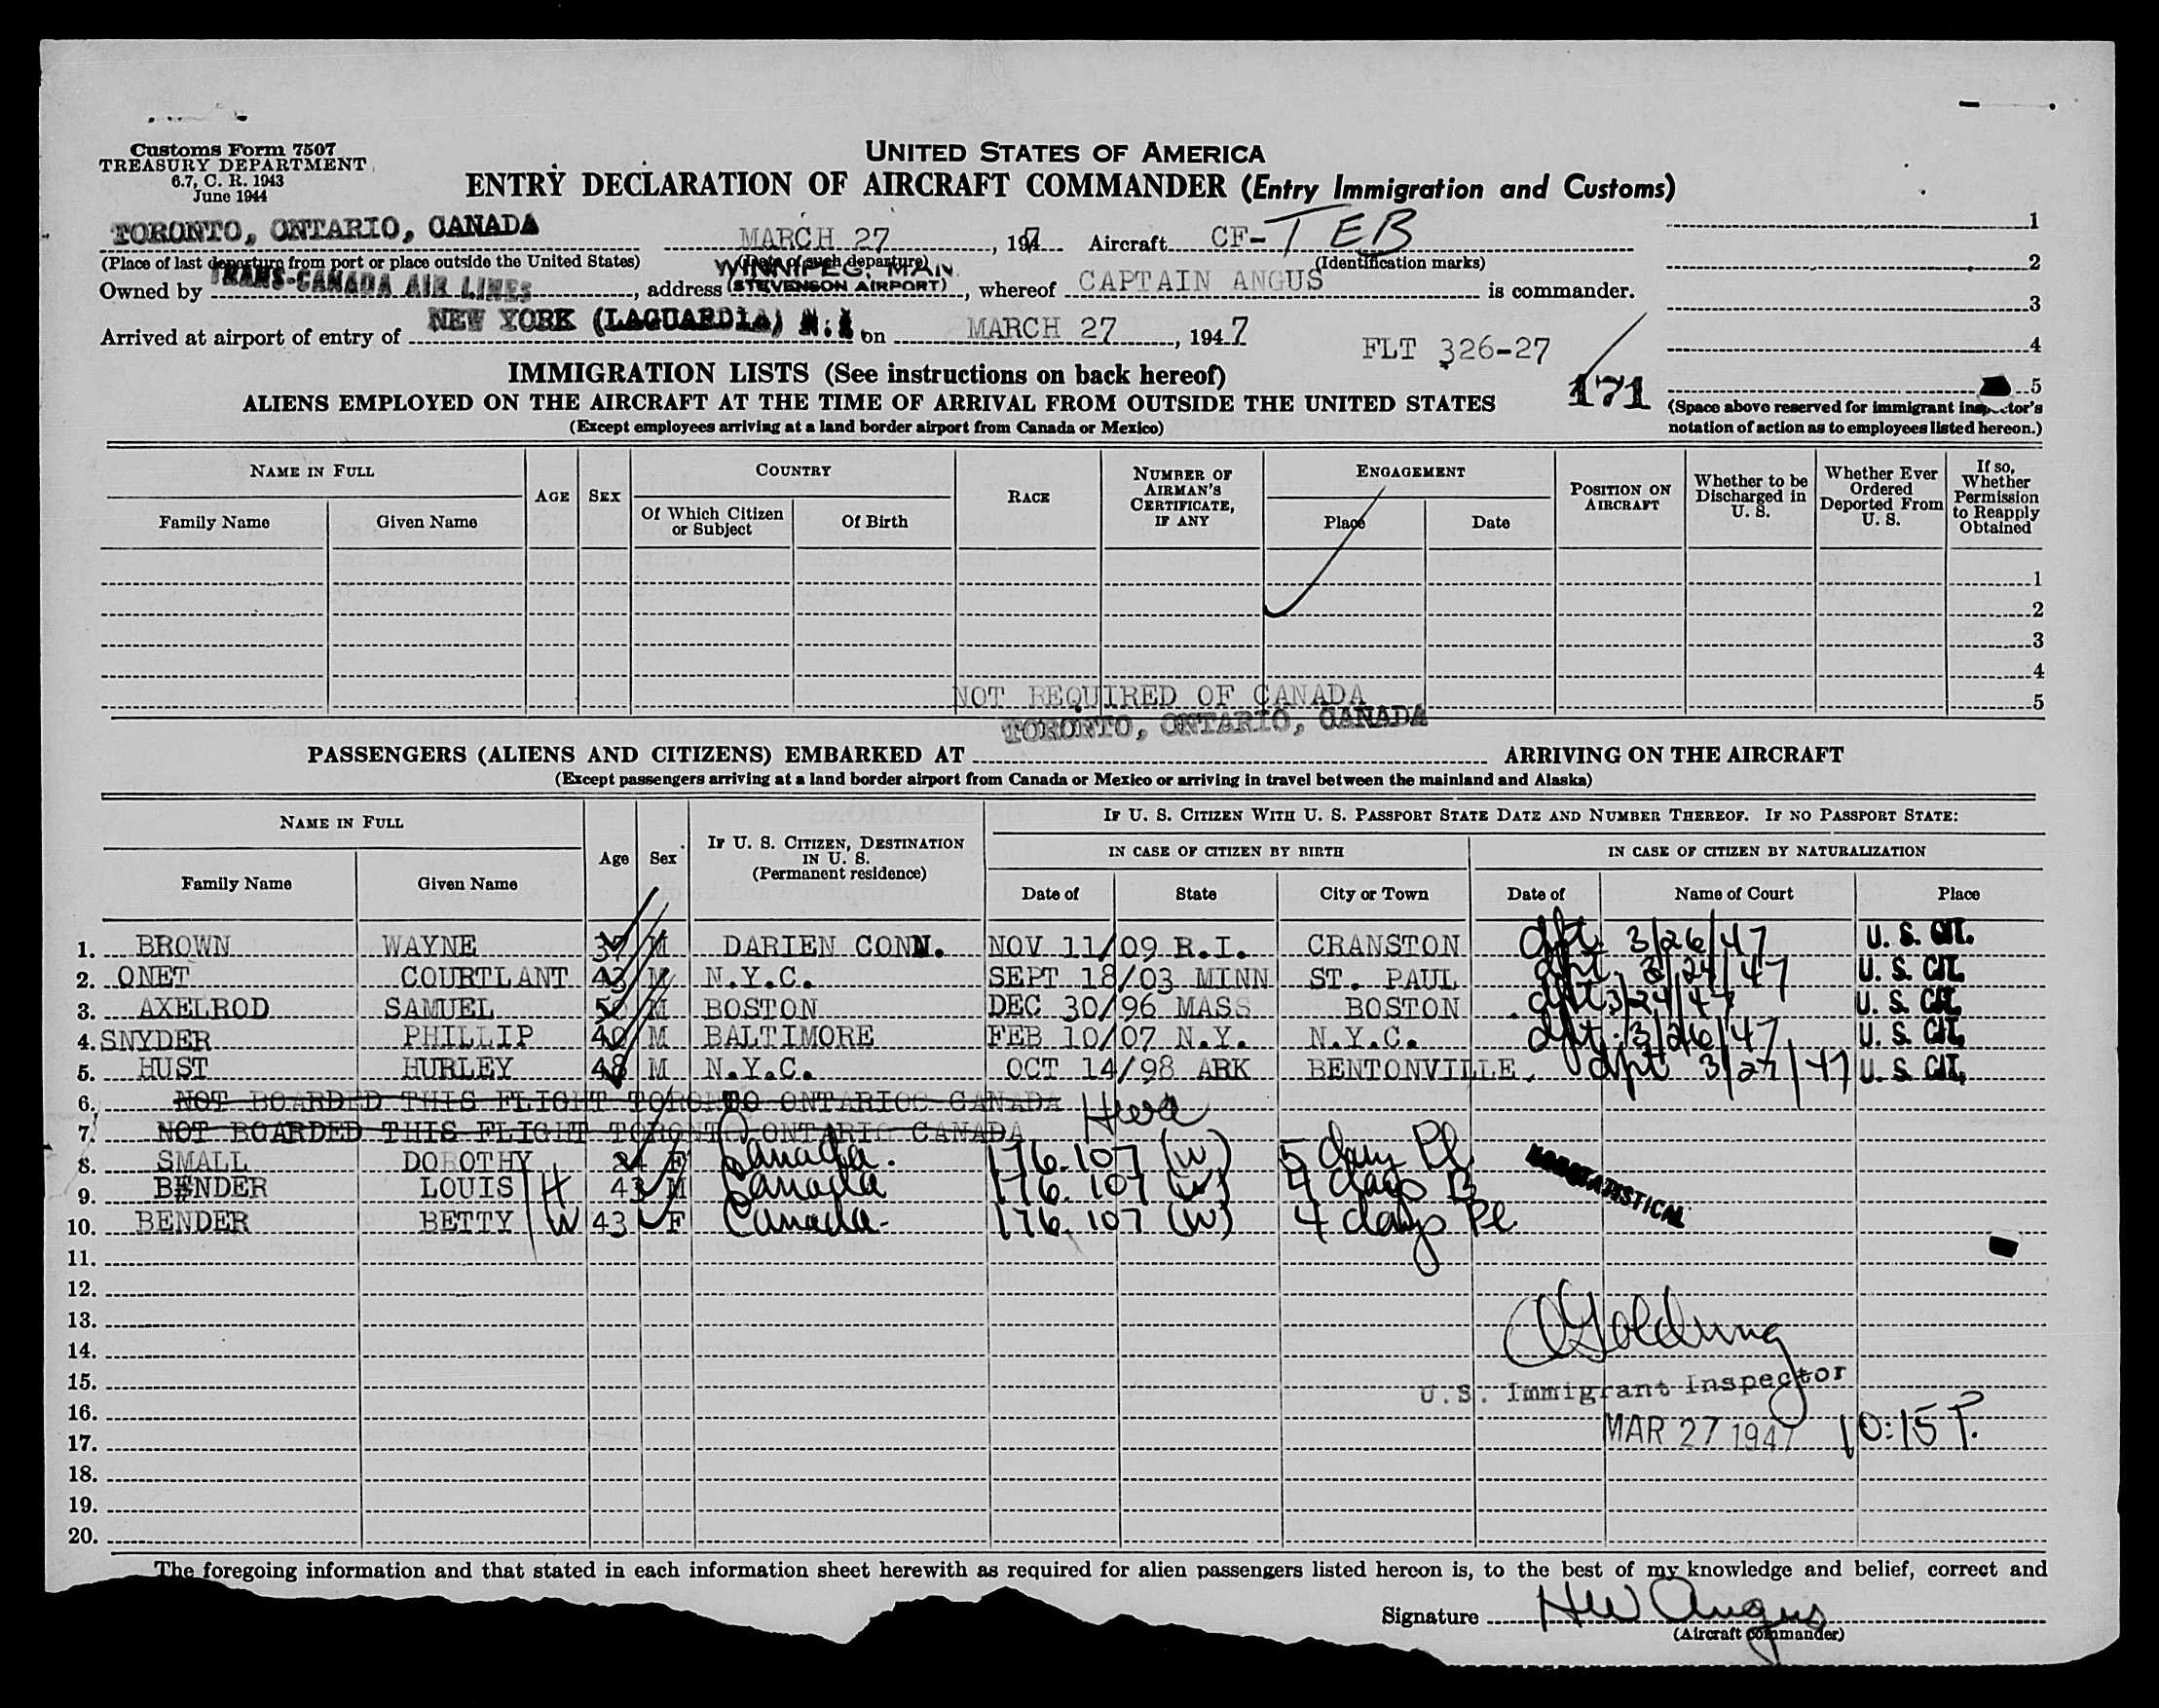 Customs Form 7507
TREASURY DEPARTMENT
6.7, C. R. 1943
June 1944
UNITED STATES OF AMERICA
ENTRY DECLARATION OF AIRCRAFT COMMANDER (Entry Immigration and Customs)
TORONTO, ONTARIO, CANADA MARCH 27, 1947 Aircraft CF-TEB 1
(Place of last departure from port or place outside the United States) (Date of such departure) (Identification marks) 2
WINNIPEG, MAN.
Owned by TRANS-CANADA AIR LINES, address (STEVENSON AIRPORT), whereof CAPTAIN ANGUS is commander. 3
Arrived at airport of entry of NEW YORK (LAGUARDIA) N.Y. on MARCH 27, 1947 FLT 326-27 4
IMMIGRATION LISTS (See instructions on back hereof) 171 5
ALIENS EMPLOYED ON THE AIRCRAFT AT THE TIME OF ARRIVAL FROM OUTSIDE THE UNITED STATES
(Except employees arriving at a land border airport from Canada or Mexico)
(Space above reserved for immigrant inspector's
notation of action as to employees listed hereon.)
NAME IN FULL AGE SEX COUNTRY RACE NUMBER OF AIRMAN'S CERTIFICATE, IF ANY ENGAGEMENT POSITION ON AIRCRAFT Whether to be Discharged in U. S. Whether Ever Ordered Deported From U. S. If so, Whether Permission to Reapply Obtained
Family Name Given Name Of Which Citizen or Subject Of Birth Place Date
1
2
3
4
NOT REQUIRED OF CANADA 5
TORONTO, ONTARIO, CANADA
PASSENGERS (ALIENS AND CITIZENS) EMBARKED AT ARRIVING ON THE AIRCRAFT
(Except passengers arriving at a land border airport from Canada or Mexico or arriving in travel between the mainland and Alaska)
NAME IN FULL Age Sex IF U. S. CITIZEN, DESTINATION IN U. S. (Permanent residence) IF U. S. CITIZEN WITH U. S. PASSPORT STATE DATE AND NUMBER THEREOF. IF NO PASSPORT STATE:
IN CASE OF CITIZEN BY BIRTH IN CASE OF CITIZEN BY NATURALIZATION
Family Name Given Name Date of State City or Town Date of Name of Court Place
1. BROWN WAYNE 37 M DARIEN CONN. NOV 11/09 R.I. CRANSTON dpt. 3/26/47 U. S. CIT.
2. ONET COURTLANT 43 M N.Y.C. SEPT 18/03 MINN ST. PAUL dpt. 3/24/47 U. S. CIT.
3. AXELROD SAMUEL 50 M BOSTON DEC 30/96 MASS BOSTON dpt 3/24/47 U. S. CIT.
4. SNYDER PHILLIP 40 M BALTIMORE FEB 10/07 N.Y. N.Y.C. dpt. 3/26/47 U. S. CIT.
5. HUST HURLEY 48 M N.Y.C. OCT 14/98 ARK BENTONVILLE. dpt 3/27/47 U. S. CIT.
6. NOT BOARDED THIS FLIGHT TORONTO ONTARIOC CANADA
7. NOT BOARDED THIS FLIGHT TORONTO ONTARIO CANADA
8. SMALL DOROTHY 24 F Canada. 176.107 (W) 5 days Pl
9. BENDER LOUIS H 43 M Canada 176.107 (W) 4 days B
NONSTATISTICAL
10. BENDER BETTY W 43 F Canada- 176.107 (W) 4 days Pl
11.
12.
13.
14.
15.
U.S. Immigrant Inspector
16.
17. MAR 27 1947 10:15 P.
18.
19.
20.
The foregoing information and that stated in each information sheet herewith as required for alien passengers listed hereon is, to the best of my knowledge and belief, correct and
Signature HW Angus
(Aircraft commander)